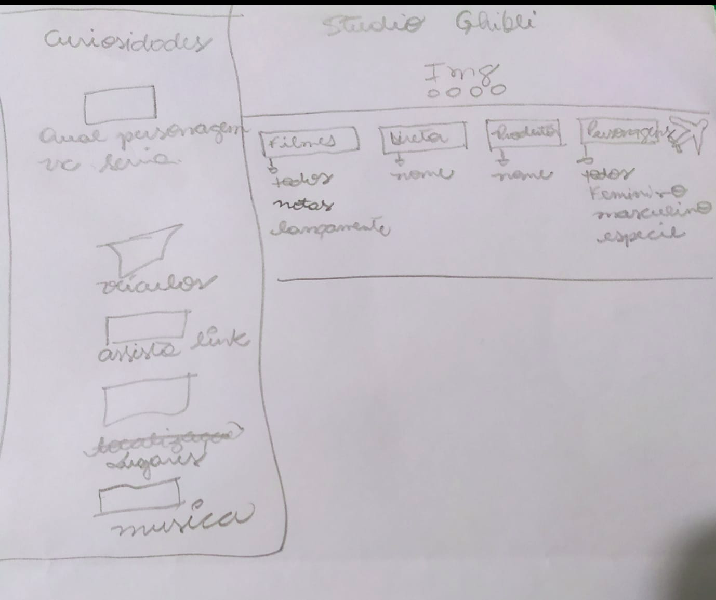 Curiosidades
Qual personagem
vc seria
veículos
assista link
localização
Lugares
musica
Studio Ghibli
Img
Filmes
todos
notas
lançamento
Direto
nome
Produto
nome
Personagens
todos
Feminino
masculino
especie